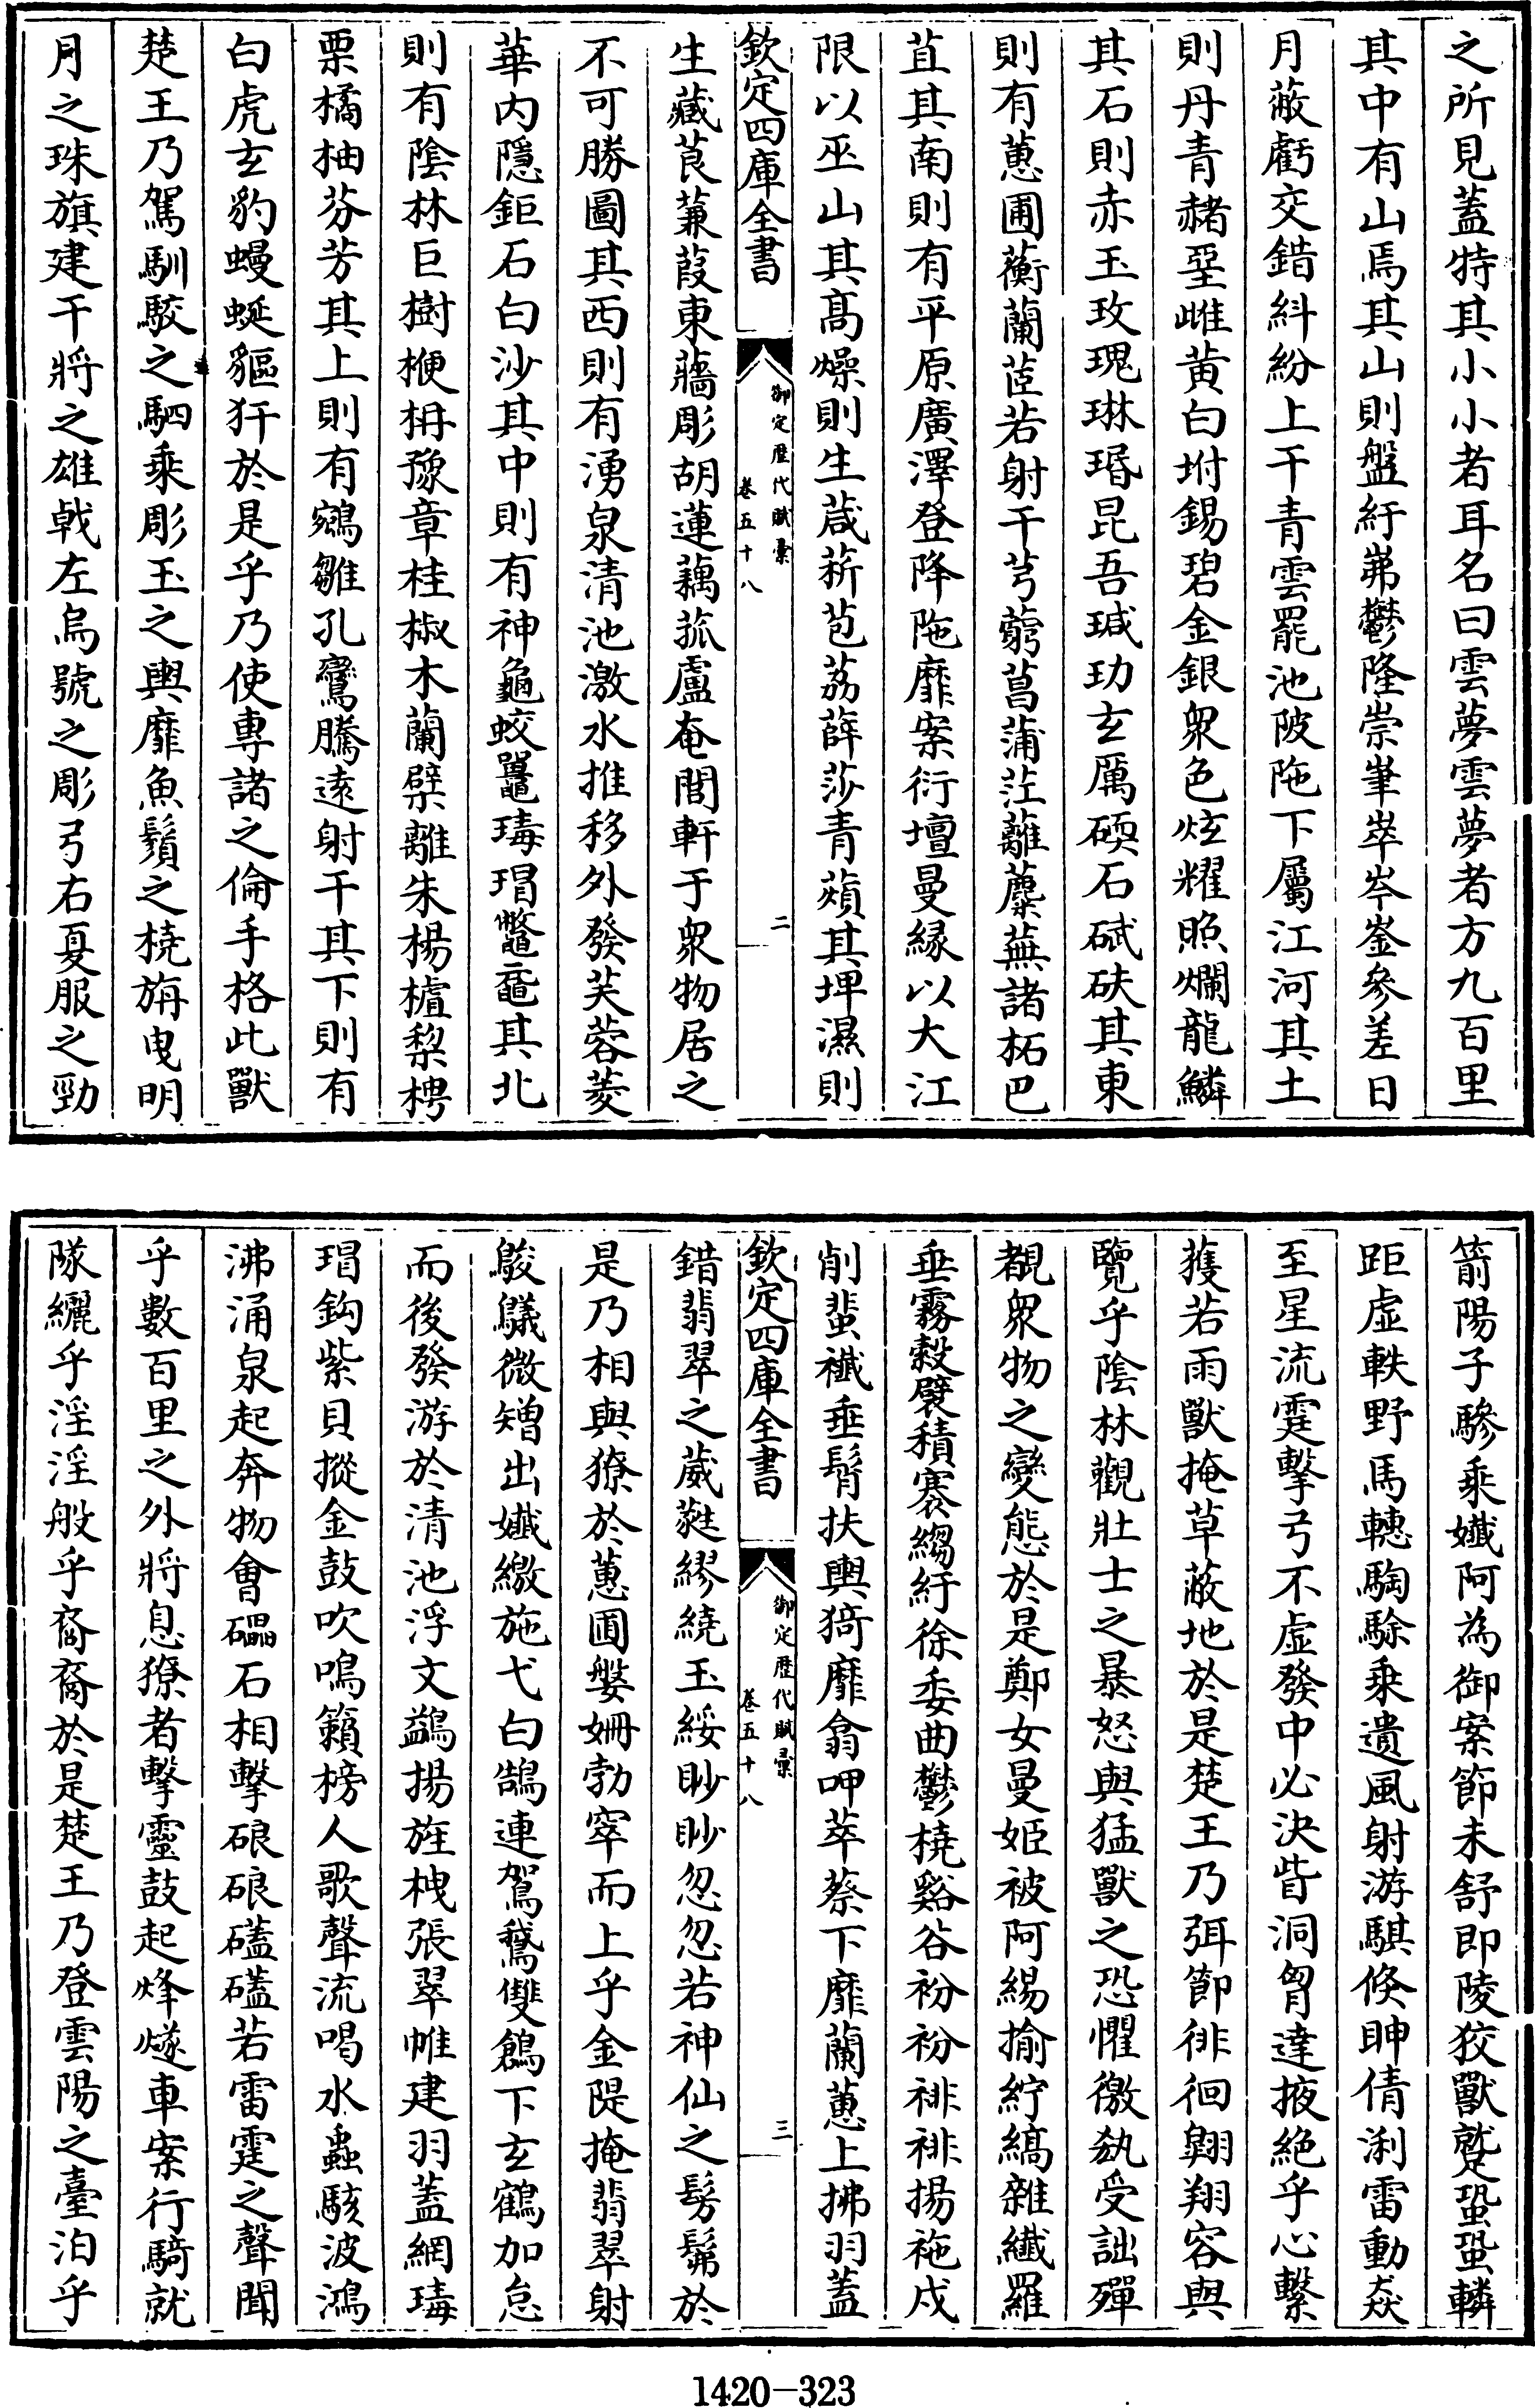 之所見蓋特其小小者耳名曰雲夢雲夢者方九百里
其中有山焉其山則盤紆岪鬱隆崇崒崒岑崟參差日
月蔽虧交錯糾紛上干青雲罷池陂陁下屬江河其土
則丹青赭堊雌黄白坿錫碧金銀衆色炫燿照爛龍鱗
其石則赤玉玫瑰琳珉昆吾瑊玏玄厲碝石碔砆其東
則有蕙圃蘅蘭茝若射干芎藭菖蒲茳蘺蘪蕪諸柘巴
苴其南則有平原廣澤登降陁靡案衍壇曼緣以大江
限以巫山其髙燥則生葴菥苞荔薛莎青薠其埤濕則
欽定四庫全書
御定歷代賦彙
卷五十八
二
生藏莨蒹葭東蘠彫胡蓮藕菰盧奄閭軒于衆物居之
不可勝圖其西則有湧泉清池激水推移外發芙蓉菱
華内隱鉅石白沙其中則有神龜蛟鼉瑇瑁鼈黿其北
則有陰林巨樹楩柟豫章桂椒木蘭檗離朱楊樝棃梬
栗橘柚芬芳其上則有鵷雛孔鸞騰遠射干其下則有
白虎玄豹蟃蜒貙犴於是乎乃使專諸之倫手格此獸
楚王乃駕馴駮之駟乘彫玉之輿靡魚鬚之橈旃曳明
月之珠旗建干將之雄戟左烏號之彫弓右夏服之勁
箭陽子驂乘孅阿為御案節未舒即陵狡獸蹵蛩蛩轔
距虚軼野馬轊騊駼乘遺風射游騏倏眒倩浰雷動猋
至星流霆擊弓不虛發中必決眥洞胷達掖絶乎心繫
獲若雨獸掩草蔽地於是楚王乃弭節徘徊翺翔容與
覽乎陰林觀壯士之暴怒與猛獸之恐懼徼𠈁受詘殫
覩衆物之變態於是鄭女曼姬被阿緆揄紵縞雜纖羅
垂霧縠襞積褰縐紆徐委曲鬱橈谿谷衯衯裶裶揚袘戌
削蜚襳垂髾扶輿猗靡翕呷萃蔡下靡蘭蕙上拂羽蓋
欽定四庫全書
御定歷代賦彙
卷五十八
三
錯翡翠之葳蕤繆繞玉綏眇眇忽忽若神仙之髣髴於
是乃相與獠於蕙圃媻姍勃窣而上乎金隄掩翡翠射
鵔鸃微矰出孅繳施弋白鵠連鴐鵞雙鶬下玄鶴加怠
而後發游於清池浮文鷁揚旌栧張翠帷建羽蓋網瑇
瑁鈎紫貝摐金鼓吹鳴籟榜人歌聲流喝水蟲駭波鴻
沸涌泉起奔物會礧石相擊硠硠礚礚若雷霆之聲聞
乎數百里之外將息獠者擊靈鼓起烽燧車案行騎就
隊纚乎淫淫般乎裔裔於是楚王乃登雲陽之臺泊乎
1420-323